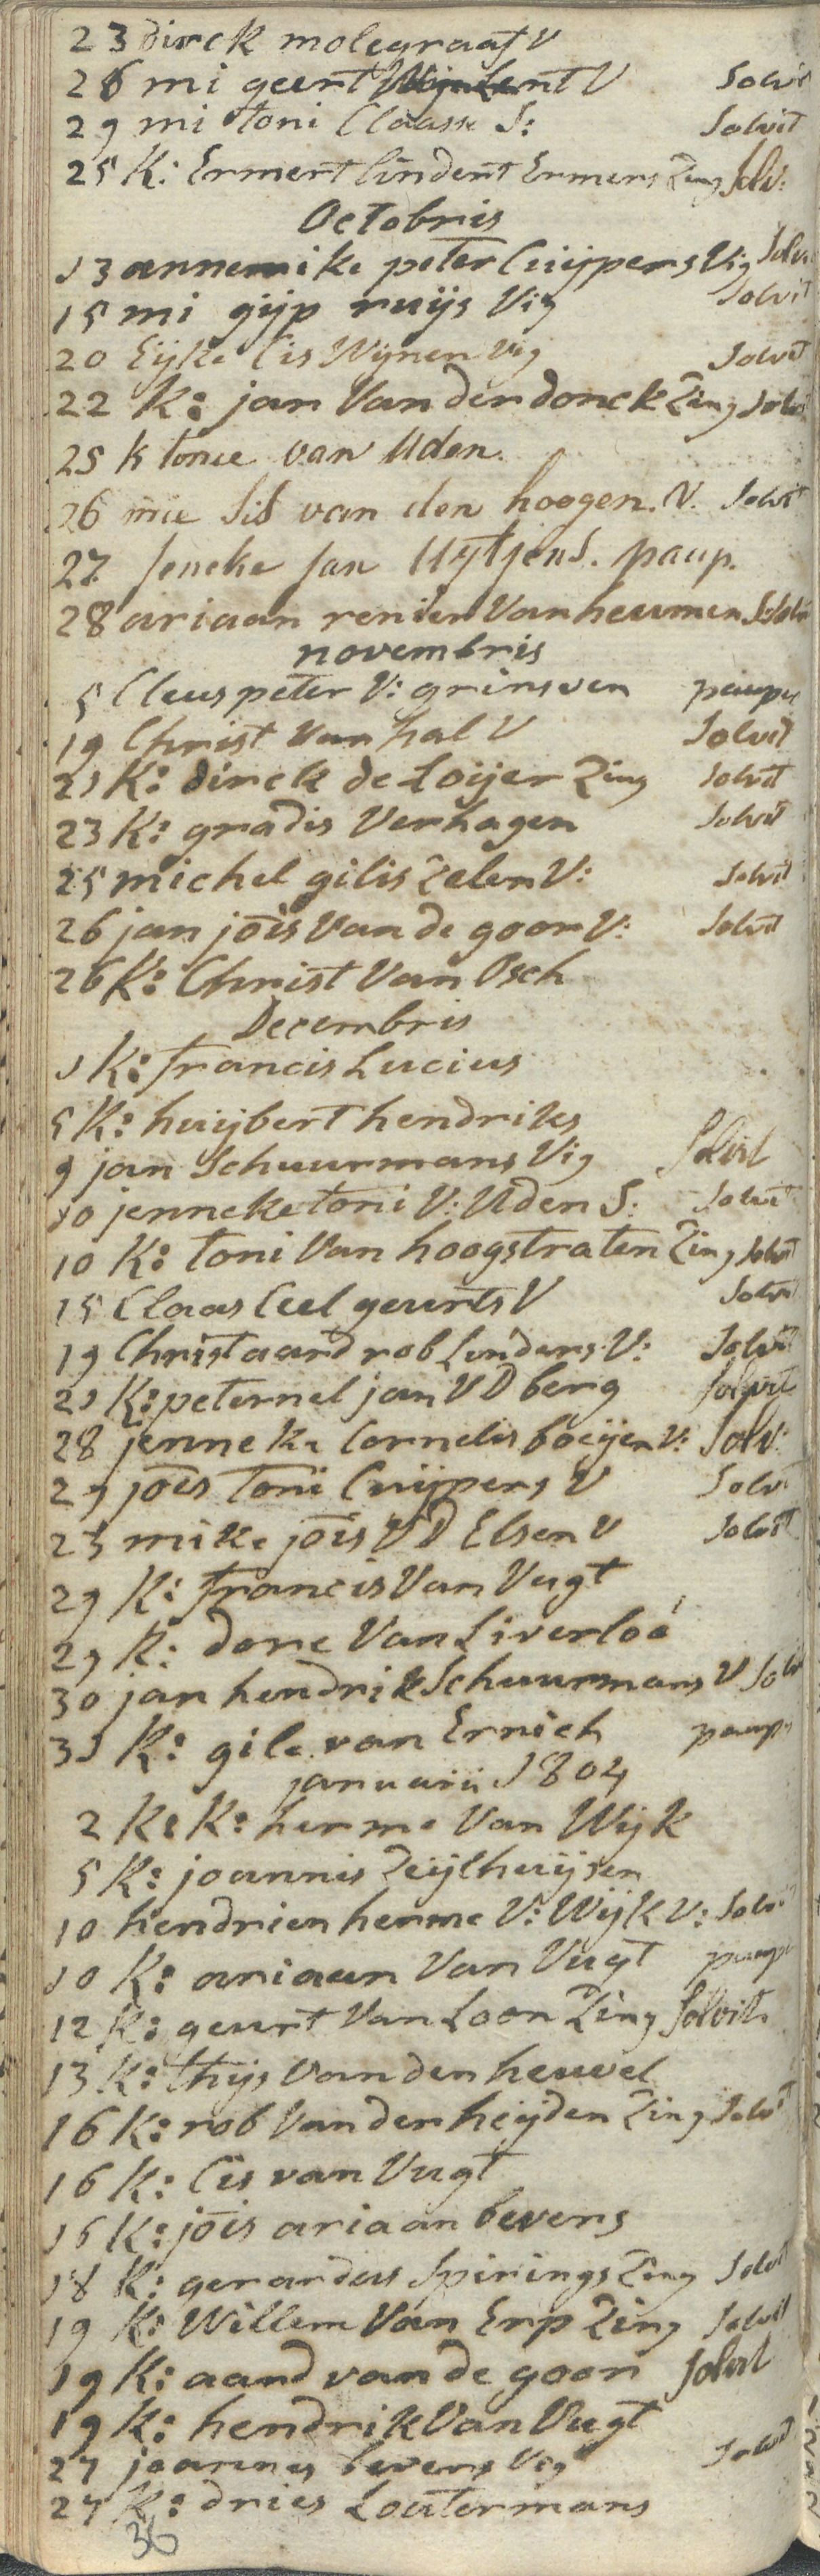 23 dirck molegraaf V
26 mi geert V Solvit
29 mi toni Claasse S: Solvit
25 K: Ermert lindent Ermens Zing Solv:
Octobris
13 annemike peter Cuijpers Vig Solv
15 mi gijp ruijs Vig Solvit
20 Eijke Cis Wijnen Vig Solvit
22 K: jan Van der donck Zing Solvi
25 k tonie van Uden.
26 mie Sis van den hoogen. V. Solvit
27 Jeneke Jan Uytjens. paup.
28 ariaan renier Van heumen Solvi
novembris
5 Cleus peter V: grinsven pauper
19 Christ Van hal V Solvit
21 K: dirck de Loijer Zing Solvit
23 K: gradis Verhagen Solvit
25 michel gilis Zelen V: Solvit
26 jan jois Van de goor V: Solvit
26 K: Christ Van Osch
Decembris
1 K: francis Lucius
5 K: huijbert hendriks
9 jan Schuurmans Vig Solvit
10 jenneke toni V: Uden S: Solvit
10 K: toni Van hoogstraten Zing Solvit
15 Claas Ceel geurts V Solvit
19 Christ aard rob Linders V: Solvit
21 K: peternel jan V D berg Solvit
28 jenneke Cornelis boeijen V: Solv:
29 jois Toni Cuijpers V Solvit
23 mike jois V D Elsen V Solvit
29 K: francis Van Vugt
29 K: dorie Van Liverloo
30 jan hendrik Schuurmans V Solv
31 K: gile van Ernich paup
januarii 1804
2 K: K: herme Van Wijk
5 K: joannis Zeijlhuijsen
10 hendrien herme V: Wijk V: Solvi
10 K: ariaan Van Vugt paup
12 K: geurt Van Loon Zing Solvit
13 K: thijs van den heuvel
16 K: rob Van der heijden Zing Solvit
16 K: Cis van Vugt
16 K: jois ariaan bevers
18 K: gerardus Spirings Zing Solvit
19 K: Willem Van Erp Zing Solvit
19 K: aard van de goor Solvit
19 K: hendrik Van Vugt
27 joannes bevers Vig Solvit
27 K: dries Loutermans
36